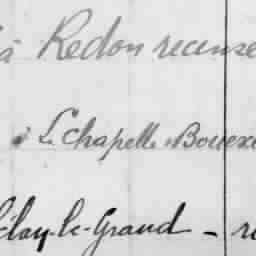 à Redon recensé
à La chapelle Bouëxi
Vélay-le-Grand - re